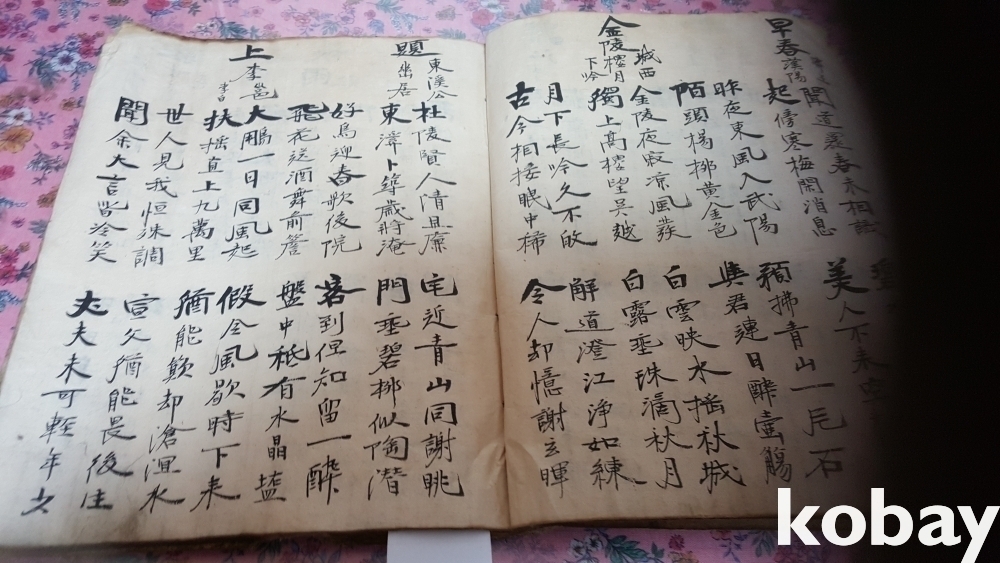 早春漢陽
聞道還春未相識
起傍寒梅開消息
昨夜東風入武陽
陌頭楊柳黃金色
美人不來空
預拂青山一片石
與君連日醉壺觴
金陵城西樓月下吟
金陵夜寂凉風發
獨上高樓望吳越
白雲映水搖秋城
白露垂珠滴秋月
月下長吟久不改
古今相接眼中稀
解道澄江淨如練
令人却憶謝玄暉
題東溪公幽居
杜陵賢人清且廉
東溪卜築歲將淹
宅近青山同謝眺
門垂碧柳似陶潛
好鳥迎春歌後院
飛花送酒舞前簷
客到但知留一醉
盤中祗有水晶塩
上李邕 李白
大鵬一日同風起
扶搖直上九萬里
假令風歇時下來
猶能簸却滄溟水
世人見我恒殊調
聞余大言皆冷笑
宣父猶能畏後生
丈夫未可輕年少
kobay